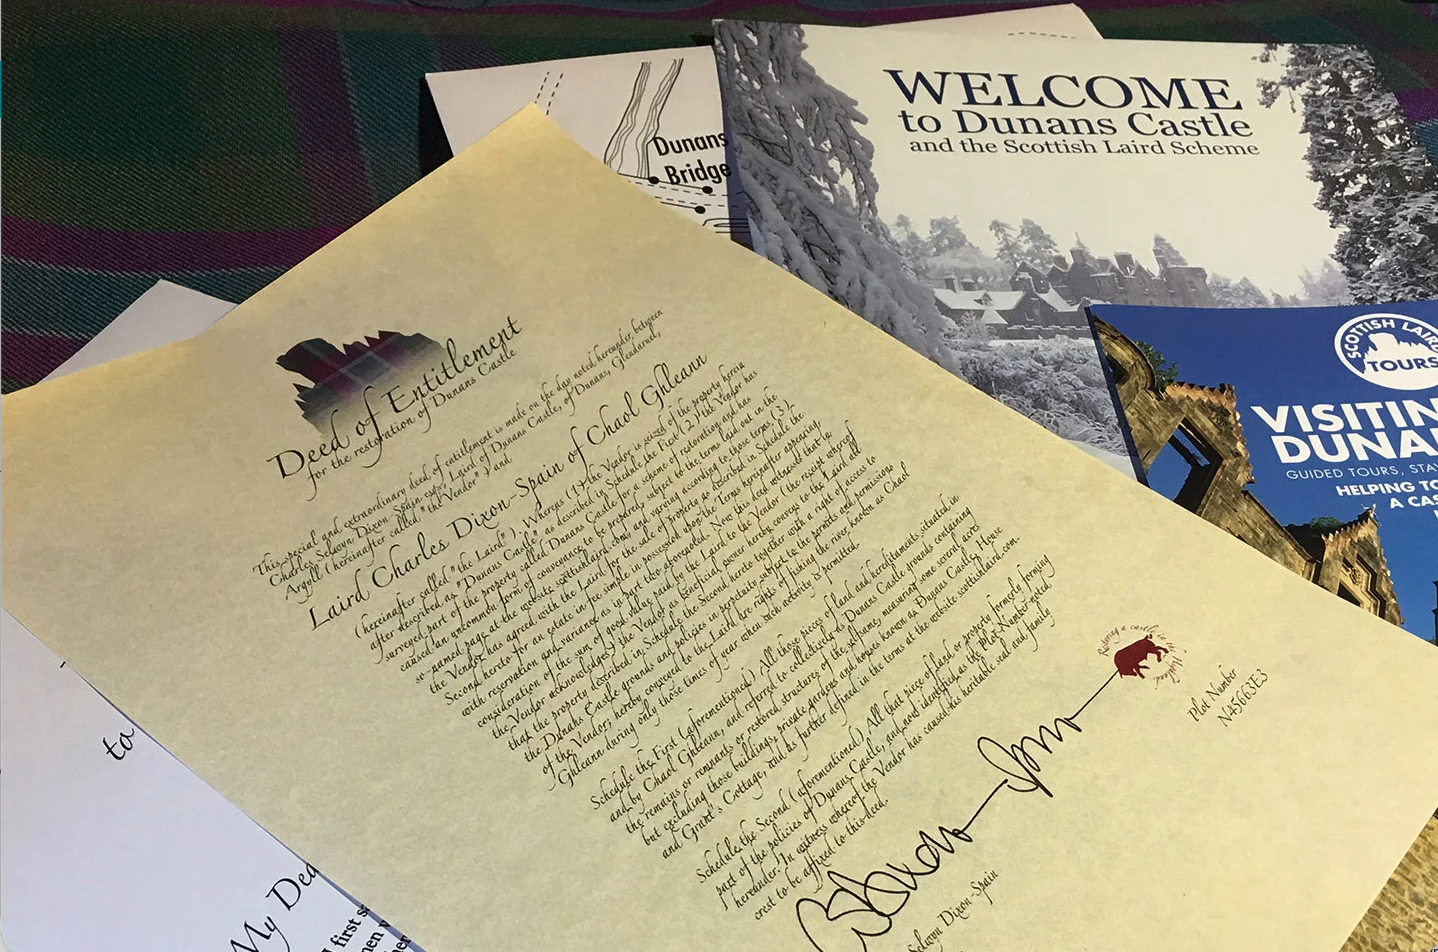 Dunans
Bridge
WELCOME
to Dunans Castle
and the Scottish Laird Scheme
SCOTTISH LAIRD
TOURS
VISITIN
DUNA
GUIDED TOURS, STA
HELPING TO
A CAS
Deed of Entitlement
for the restoration of Dunans Castle
This special and extraordinary deed of entitlement is made on the day noted hereunder, between
Charles Selwyn Dixon-Spain, esq., Laird of Dunans Castle, of Dunans, Glendaruel,
Argyll (hereinafter called "the Vendor") and
Laird Charles Dixon-Spain of Chaol Ghleann
(hereinafter called "the Laird"). Whereas (1) the Vendor is seized of the property herein
after described as "Dunans Castle" as described in Schedule the First (2) the Vendor has
surveyed part of the property called Dunans Castle for a scheme of restoration and has
caused an uncommon form of conveyance to be prepared, subject to the terms laid out in the
so-named page at the website scottishlaird.com, and varying according to those terms. (3)
the Vendor has agreed with the Laird for the sale of property as described in Schedule the
Second hereto for an estate in fee simple in possession upon the Terms hereinafter appearing,
with reservation and variance as in part they aforetold. Now this deed witnesses that in
consideration of the sum of good value paid by the Laird to the Vendor (the receipt whereof
the Vendor acknowledges) the Vendor as beneficial owner hereby conveys to the Laird all
that the property described in Schedule the Second hereto together with a right of access to
the Dunans Castle grounds and policies in perpetuity subject to the permits and permissions
of the Vendor; hereby conveyed to the Laird are rights of fishing the river known as Chaol
Ghleann during only those times of year when such activity is permitted.
Schedule the First (aforementioned) All those pieces of land and hereditaments situated in
and by Chaol Ghleann, and referred to collectively as Dunans Castle grounds containing
the remains or remnants or restored structures of the selfsame, measuring some several acres
but excluding those buildings, private gardens and houses known as Dunans Castle House
and Grant's Cottage, and as further defined in the terms at the website scottishlaird.com.
Schedule the Second (aforementioned) All that piece of land or property formerly forming
part of the policies of Dunans Castle, and now identified as the Plot Number noted
hereunder. In witness whereof the Vendor has caused his heritable seal and family
crest to be affixed to this deed.
Restoring a castle in the Highlands
Plot Number
N45663E3
Selwyn Dixon-Spain
to
My Dea
I first s